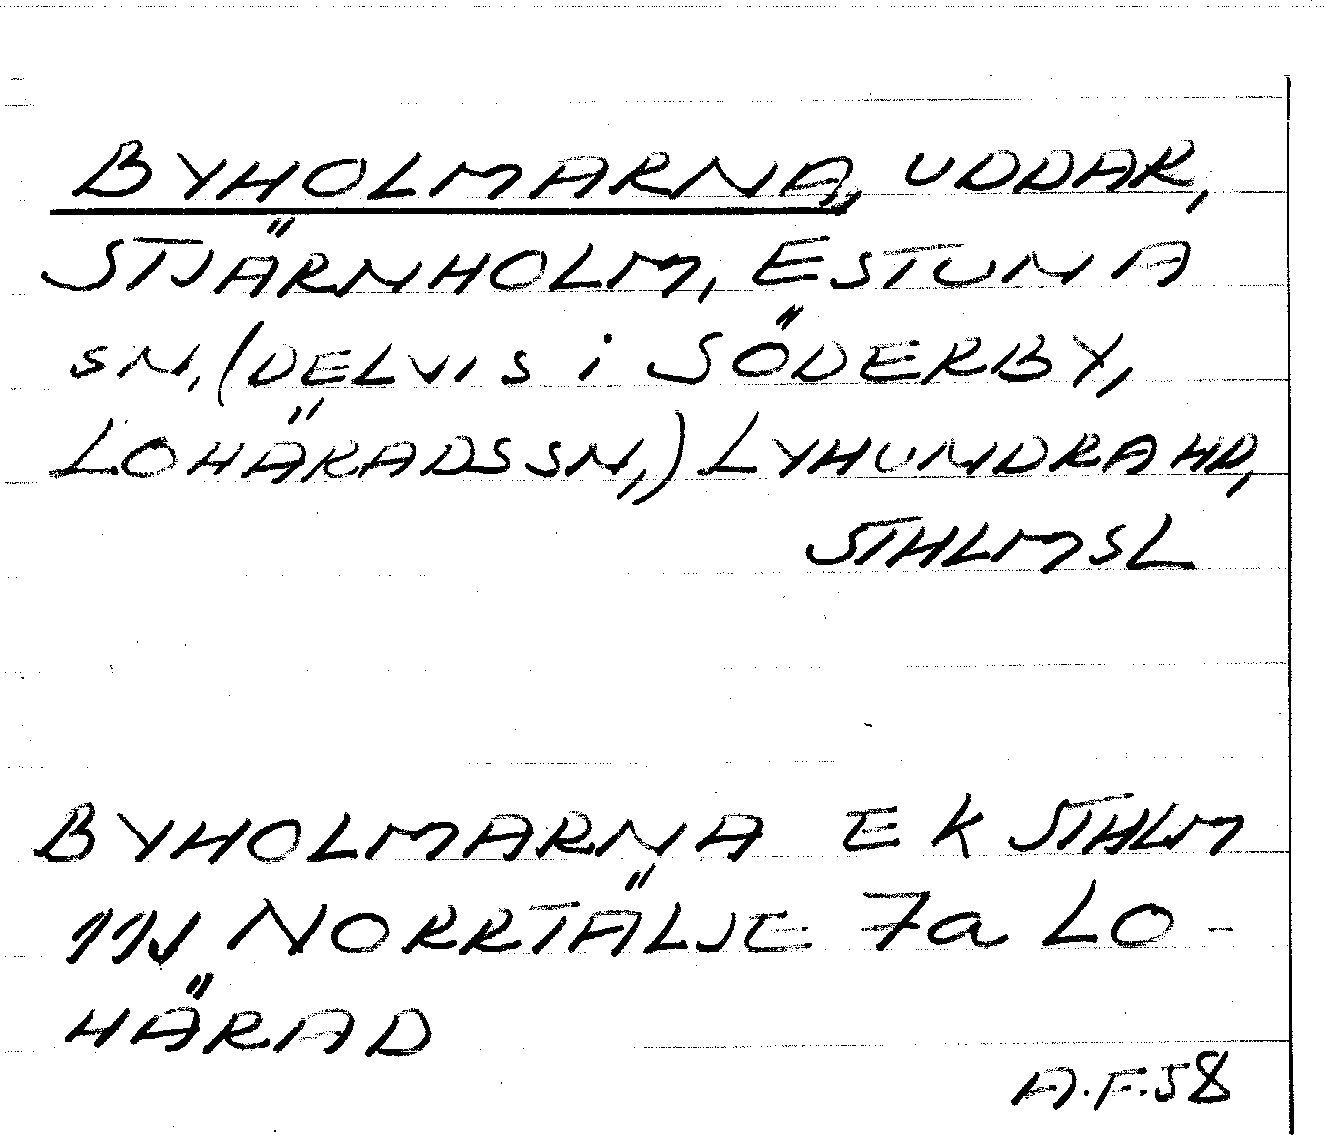 BYHOLMARNA, UDDAR,
STJÄRNHOLM, ESTUNA
SN, (DELVIS i SÖDERBY,
LOHÄRADS SN,) LYHUNDRA HD,
STHLMS L
BYHOLMARNA EK STHLM
11J NORRTÄLJE 7a LO-
HÄRAD
A.F.58